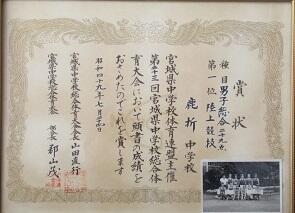 賞状
種目 男子総合 二十九点
第一位 陸上競技
鹿折中学校
宮城県中学校体育連盟主催
第二十三回宮城県中学校総合体
育大会において頭書の成績を
おさめたのでこれを賞します
昭和四十九年七月二十四日
宮城県中学校体育連盟会長 山田直行
宮城県中学校体育連盟 部長 郡山茂